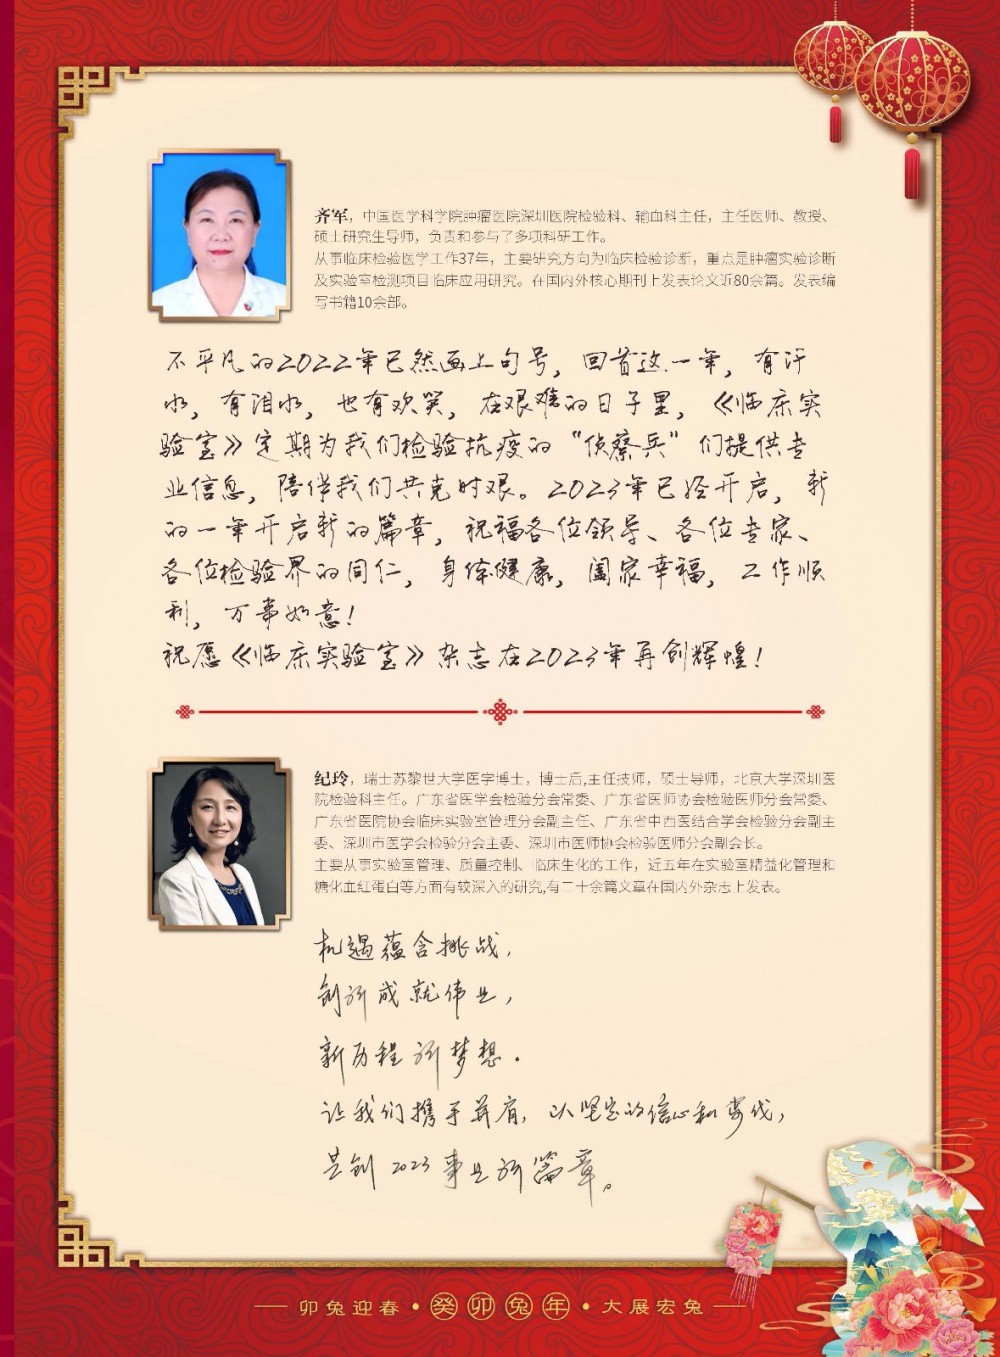 齐军，中国医学科学院肿瘤医院深圳医院检验科、输血科主任，主任医师、教授、
硕士研究生导师，负责和参与了多项科研工作。
从事临床检验医学工作37年，主要研究方向为临床检验诊断，重点是肿瘤实验诊断
及实验室检测项目临床应用研究。在国内外核心期刊上发表论文近80余篇。发表编
写书籍10余部。
不平凡的2022年已然画上句号，回首这一年，有汗
水，有泪水，也有欢笑，在艰难的日子里，《临床实
验室》定期为我们检验抗疫的“侦察兵”们提供专
业信息，陪伴我们共克时艰。2023年已经开启，新
的一年开启新的篇章，祝福各位领导、各位专家、
各位检验界的同仁，身体健康，阖家幸福，工作顺
利，万事如意！
祝愿《临床实验室》杂志在2023年再创辉煌！
纪玲，瑞士苏黎世大学医学博士，博士后,主任技师，硕士导师，北京大学深圳医
院检验科主任。广东省医学会检验分会常委、广东省医师协会检验医师分会常委、
广东省医院协会临床实验室管理分会副主任、广东省中西医结合学会检验分会副主
委、深圳市医学会检验分会主委、深圳市医师协会检验医师分会副会长。
主要从事实验室管理、质量控制、临床生化的工作，近五年在实验室精益化管理和
糖化血红蛋白等方面有较深入的研究,有二十余篇文章在国内外杂志上发表。
机遇蕴含挑战，
创新成就伟业，
新历程 新梦想．
让我们携手并肩，以坚定的信心和
共创2023事业新篇章。
卯兔迎春·癸卯兔年·大展宏兔